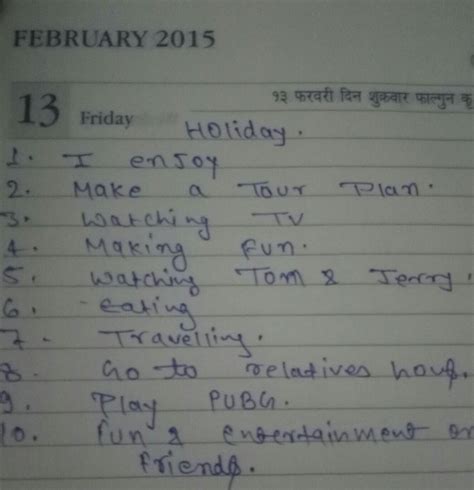 FEBRUARY 2015
१३ फरवरी दिन शुक्रवार फाल्गुन कृ
13 Friday
Holiday.
1. I enjoy
2. Make a Tour Plan.
3. Watching TV
4. Making fun.
5. Watching Tom & Jerry.
6. eating
7. Travelling.
8. Go to relatives house.
9. Play PUBG.
10. fun & entertainment or
friends.